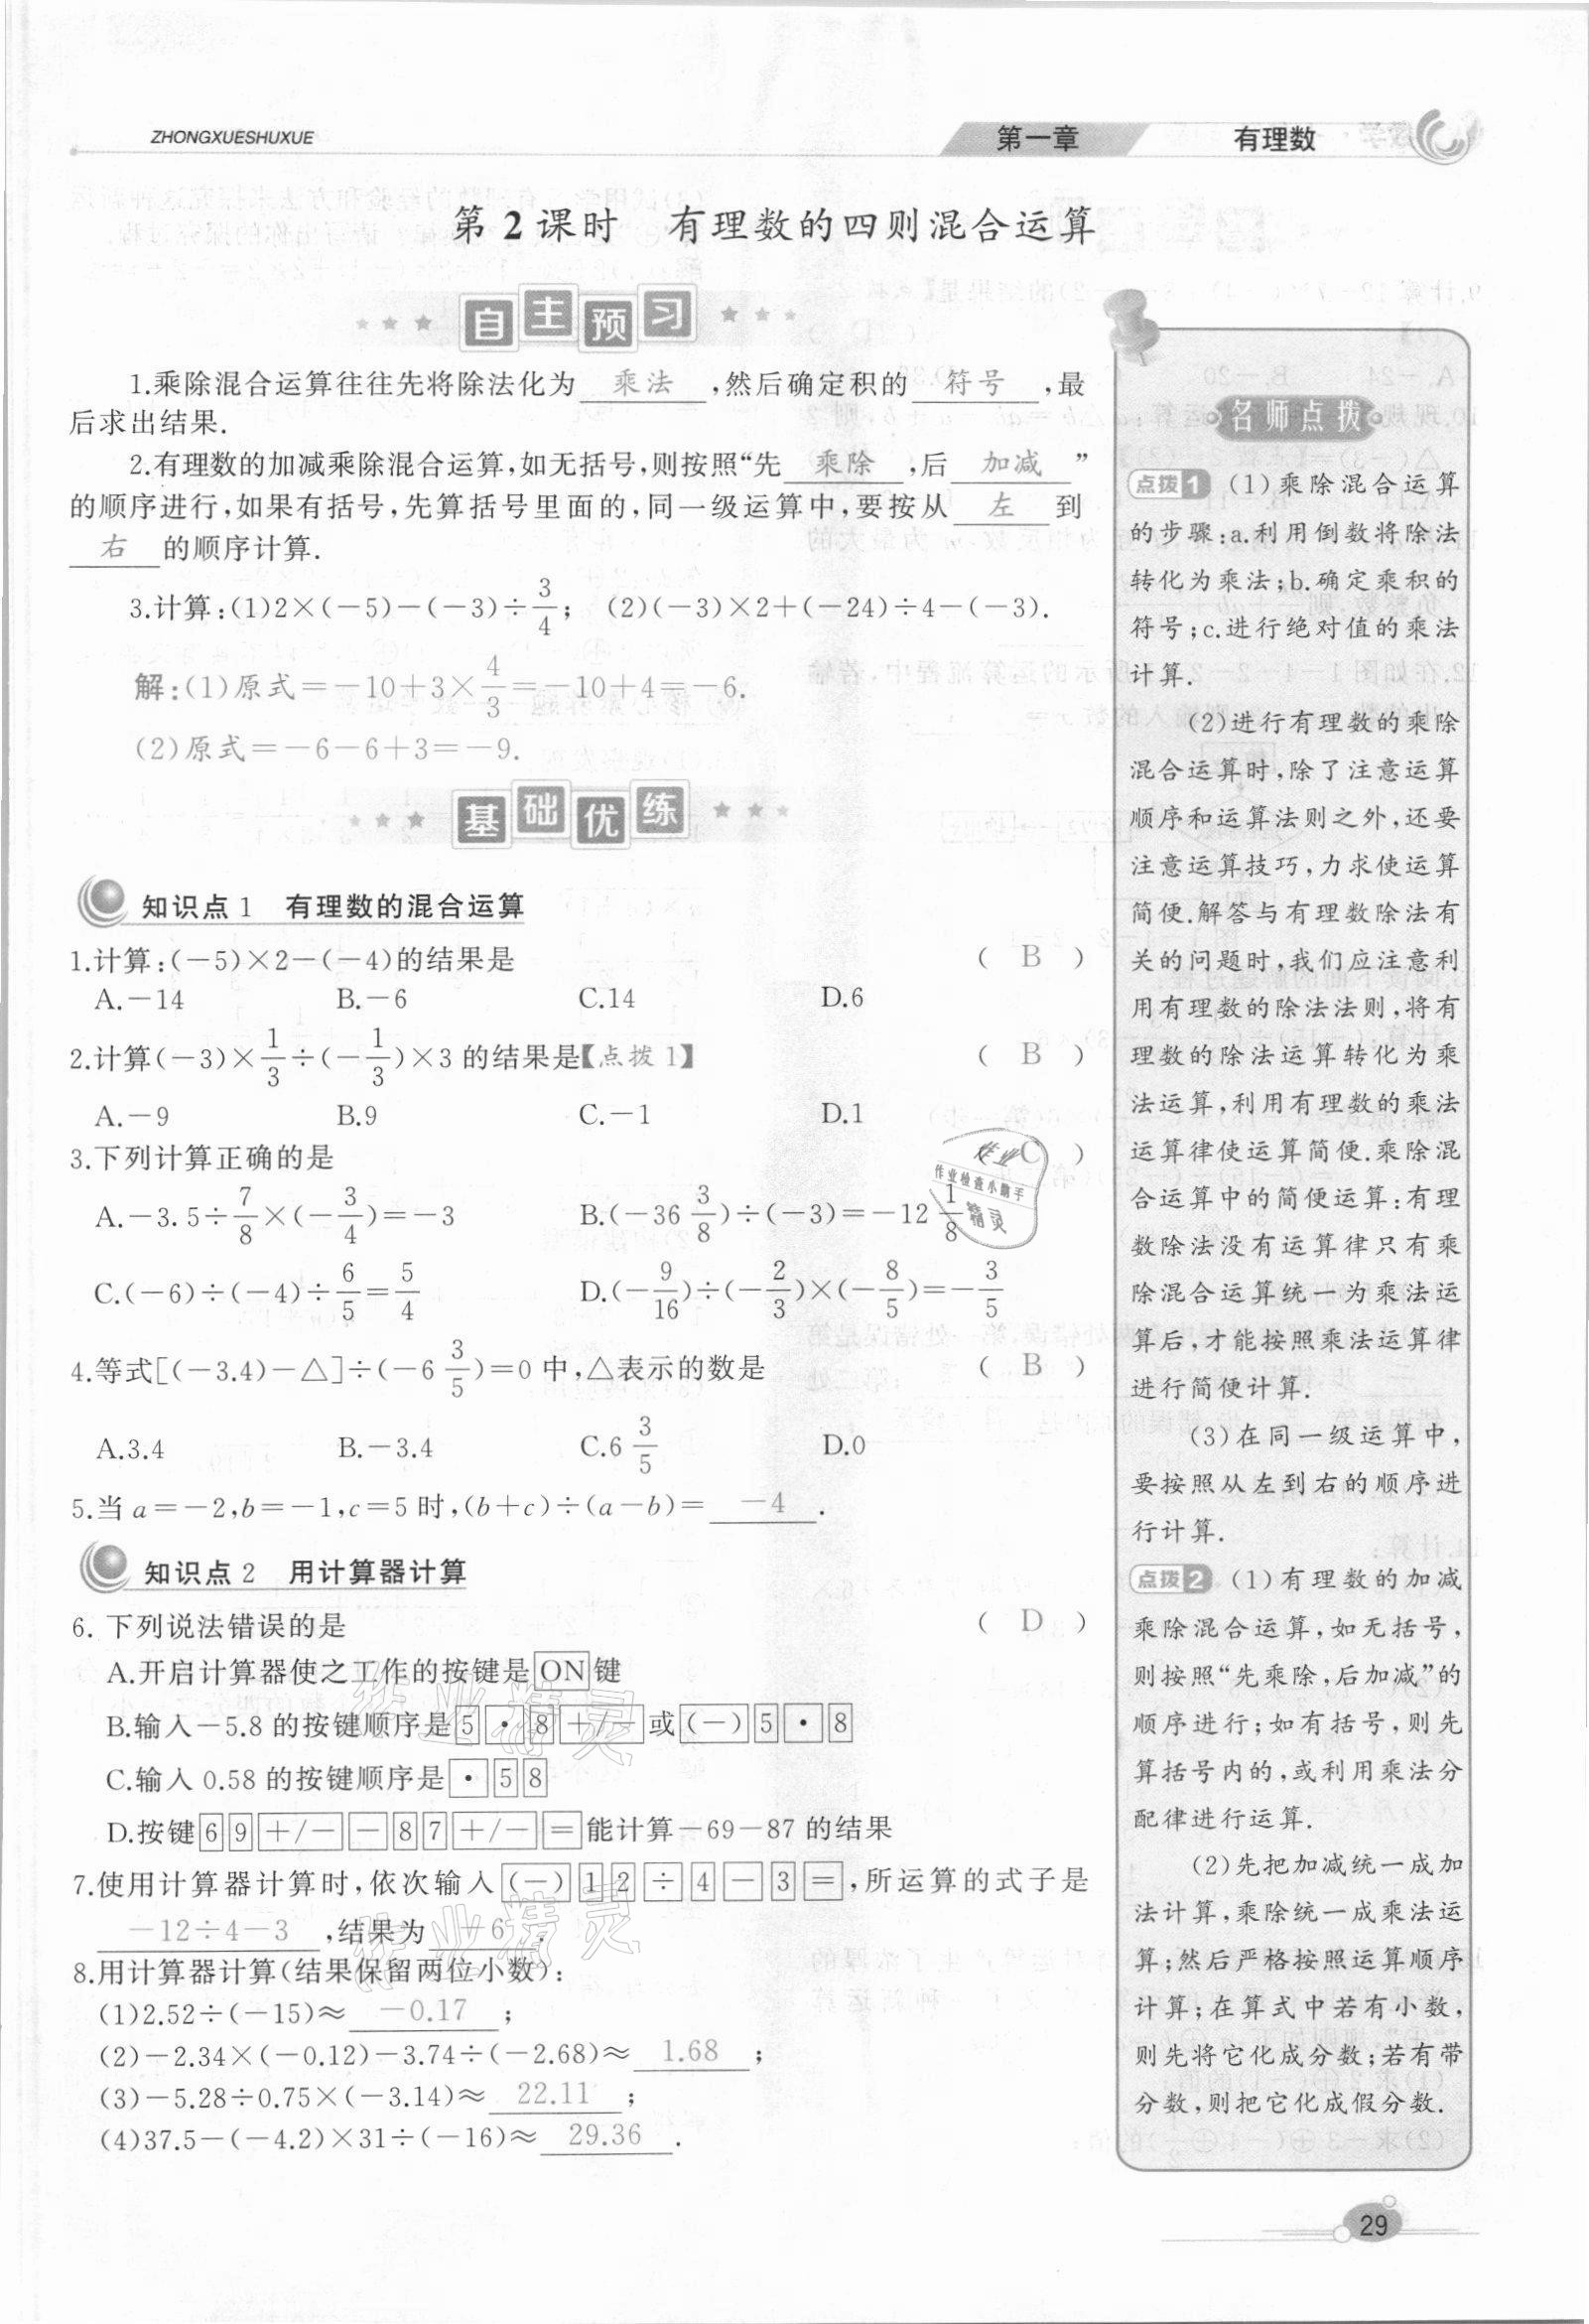 ZHONGXUESHUXUE
第一章 有理数
第2课时 有理数的四则混合运算
自主预习
1.乘除混合运算往往先将除法化为 乘法 ,然后确定积的 符号 ,最
后求出结果.
2.有理数的加减乘除混合运算,如无括号,则按照“先 乘除 ,后 加减 ”
的顺序进行,如果有括号,先算括号里面的,同一级运算中,要按从 左 到
右 的顺序计算.
3.计算:(1)2×(-5)-(-3)÷3/4; (2)(-3)×2+(-24)÷4-(-3).
解:(1)原式=-10+3×4/3=-10+4=-6.
(2)原式=-6-6+3=-9.
基础优练
知识点1 有理数的混合运算
1.计算:(-5)×2-(-4)的结果是 ( B )
A.-14 B.-6 C.14 D.6
2.计算(-3)×1/3÷(-1/3)×3的结果是【点拨1】 ( B )
A.-9 B.9 C.-1 D.1
3.下列计算正确的是 ( C )
A.-3.5÷7/8×(-3/4)=-3 B.(-36 3/8)÷(-3)=-12 1/8
C.(-6)÷(-4)÷6/5=5/4 D.(-9/16)÷(-2/3)×(-8/5)=-3/5
4.等式[(-3.4)-△]÷(-6 3/5)=0中,△表示的数是 ( B )
A.3.4 B.-3.4 C.6 3/5 D.0
5.当a=-2,b=-1,c=5时,(b+c)÷(a-b)= -4 .
知识点2 用计算器计算
6. 下列说法错误的是 ( D )
A.开启计算器使之工作的按键是 ON 键
B.输入-5.8的按键顺序是 5 · 8 +/- 或 (-) 5 · 8
C.输入0.58的按键顺序是 · 5 8
D.按键 6 9 +/- - 8 7 +/- = 能计算-69-87的结果
7.使用计算器计算时,依次输入 (-) 1 2 ÷ 4 - 3 = ,所运算的式子是
-12÷4-3 ,结果为 -6 .
8.用计算器计算(结果保留两位小数):
(1)2.52÷(-15)≈ -0.17 ;
(2)-2.34×(-0.12)-3.74÷(-2.68)≈ 1.68 ;
(3)-5.28÷0.75×(-3.14)≈ 22.11 ;
(4)37.5-(-4.2)×31÷(-16)≈ 29.36 .
名师点拨
点拨1 (1)乘除混合运算
的步骤:a.利用倒数将除法
转化为乘法;b.确定乘积的
符号;c.进行绝对值的乘法
计算.
(2)进行有理数的乘除
混合运算时,除了注意运算
顺序和运算法则之外,还要
注意运算技巧,力求使运算
简便.解答与有理数除法有
关的问题时,我们应注意利
用有理数的除法法则,将有
理数的除法运算转化为乘
法运算,利用有理数的乘法
运算律使运算简便.乘除混
合运算中的简便运算:有理
数除法没有运算律只有乘
除混合运算统一为乘法运
算后,才能按照乘法运算律
进行简便计算.
(3)在同一级运算中,
要按照从左到右的顺序进
行计算.
点拨2 (1)有理数的加减
乘除混合运算,如无括号,
则按照“先乘除,后加减”的
顺序进行;如有括号,则先
算括号内的,或利用乘法分
配律进行运算.
(2)先把加减统一成加
法计算,乘除统一成乘法运
算;然后严格按照运算顺序
计算;在算式中若有小数,
则先将它化成分数;若有带
分数,则把它化成假分数.
作业
作业检查小助手
精灵
作业精灵
作业精灵
29